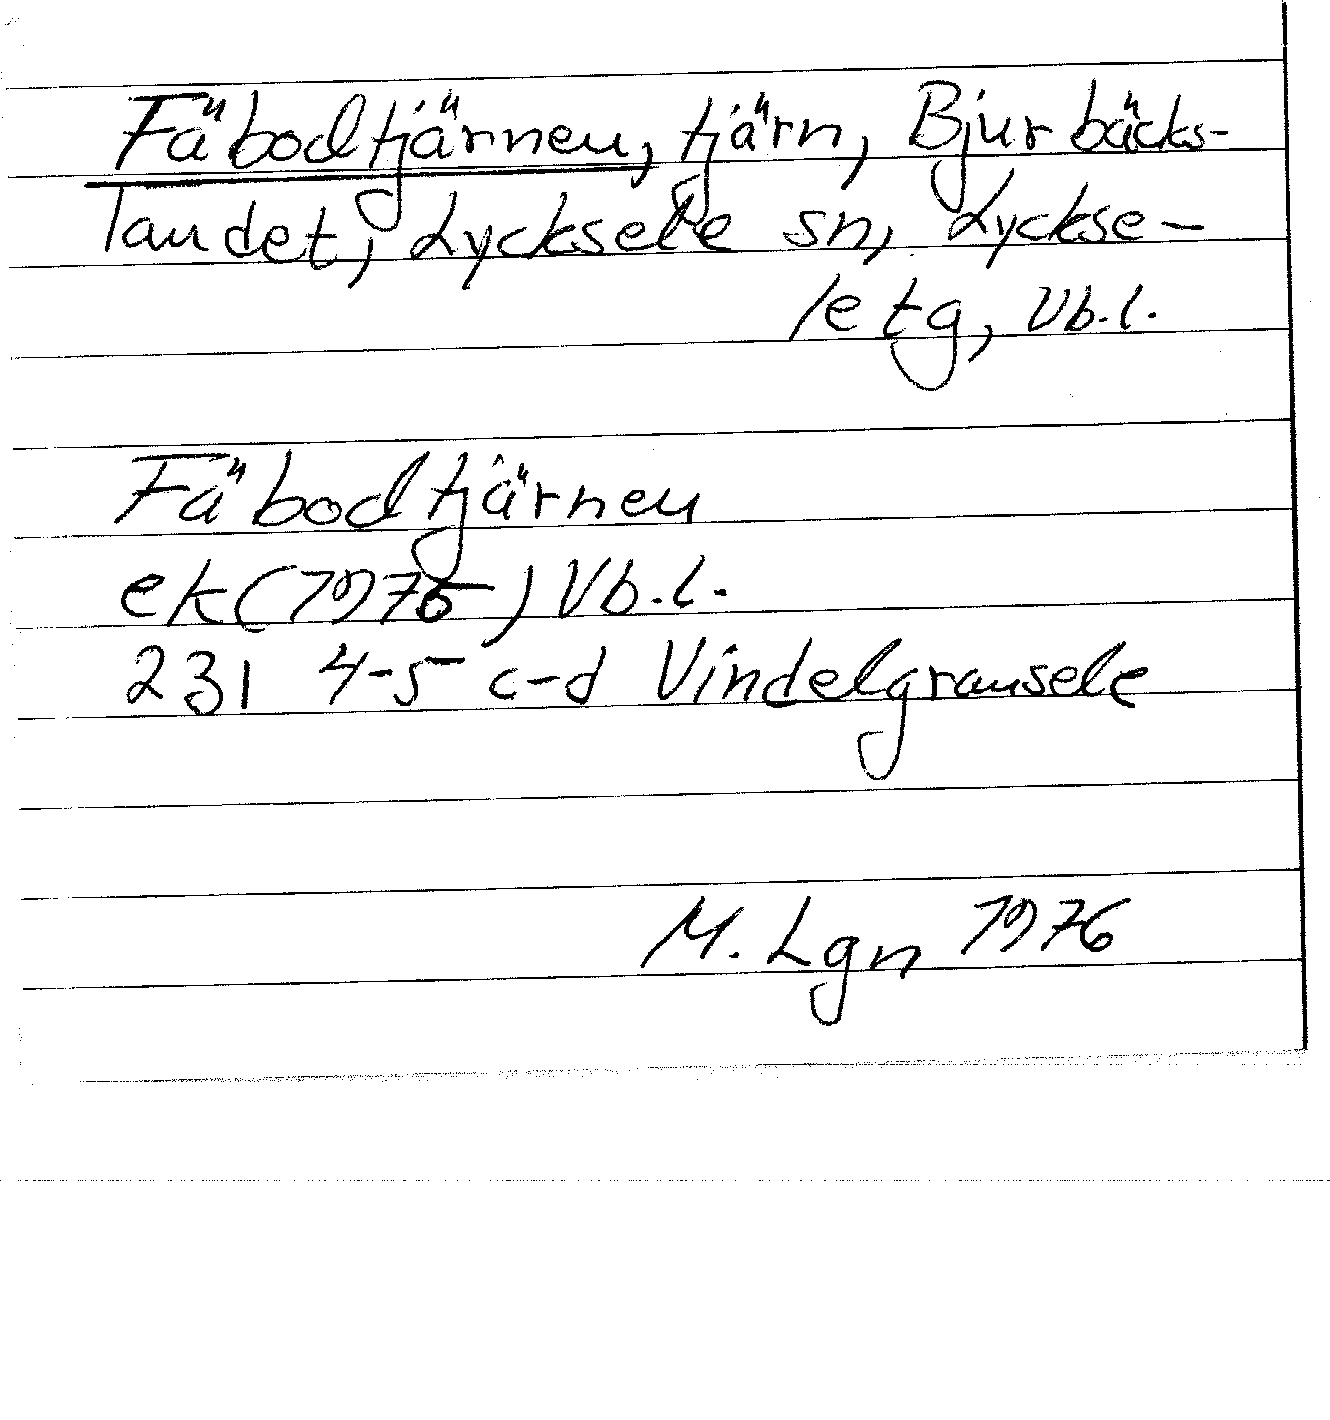 Fäbodtjärnen, tjärn, Bjurbäcks-
landet, Lycksele sn, Lyckse-
le tg, Vb.l.
Fäbodtjärnen
ek (1975) Vb.l.
231 4-5 c-d Vindelgransele
M. Lgn 1976